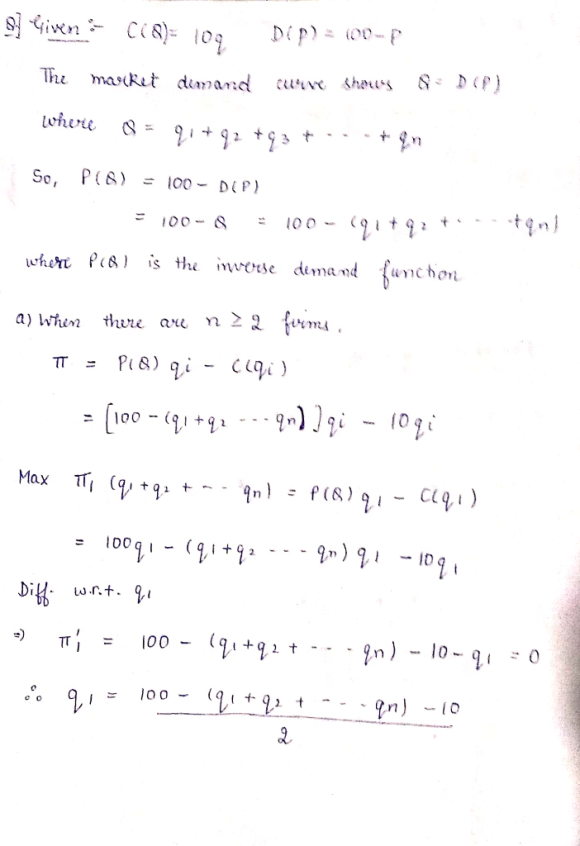 Q] Given :- C(Q)= 10q D(p) = 100-P
The market demand curve shows Q = D(P)
where Q = q1 + q2 + q3 + - - - + qn
So, P(Q) = 100 - D(P)
= 100 - Q = 100 - (q1 + q2 + - - - + qn)
where P(Q) is the inverse demand function
a) When there are n ≥ 2 firms.
π = P(Q) qi - C(qi)
= [100 - (q1 + q2 - - - qn)] qi - 10qi
Max π1 (q1 + q2 + - - qn) = P(Q) q1 - C(q1)
= 100q1 - (q1 + q2 - - - qn) q1 - 10q1
Diff. w.r.t. q1
=) π1' = 100 - (q1 + q2 + - - - qn) - 10 - q1 = 0
∴ q1 = 100 - (q1 + q2 + - - - qn) - 10
2